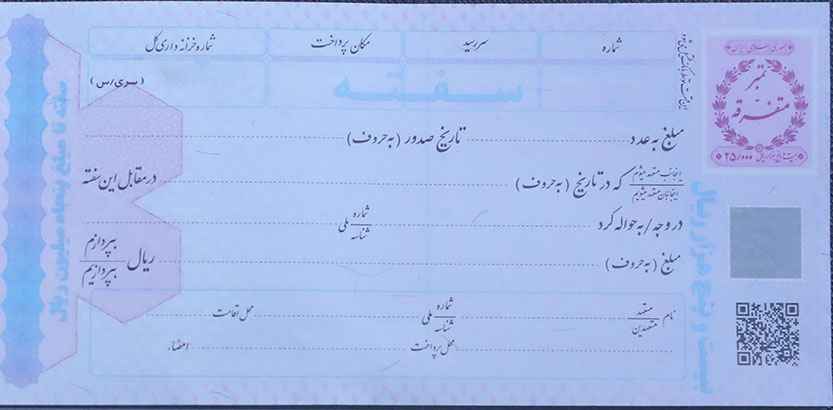 شماره
سررسید
مکان پرداخت
شماره خزانه داری کل
(سری/س)
سفته
مبلغ به عدد
تاریخ صدور (به حروف)
اینجانب متعهد میشوم
اینجانبان متعهد میشویم
که در تاریخ (به حروف)
در مقابل این سفته
در وجه / به حواله کرد
شماره
شناسه
ملی
مبلغ (به حروف)
ریال
بپردازم
بپردازیم
نام
متعهد
متعهدین
شماره
شناسه
ملی
محل اقامت
محل پرداخت
امضاء
سفته تا مبلغ پنجاه میلیون ریال
بیست و پنج هزار ریال
جمهوری اسلامی ایران
تمبر
متفرقه
۲۵/۰۰۰